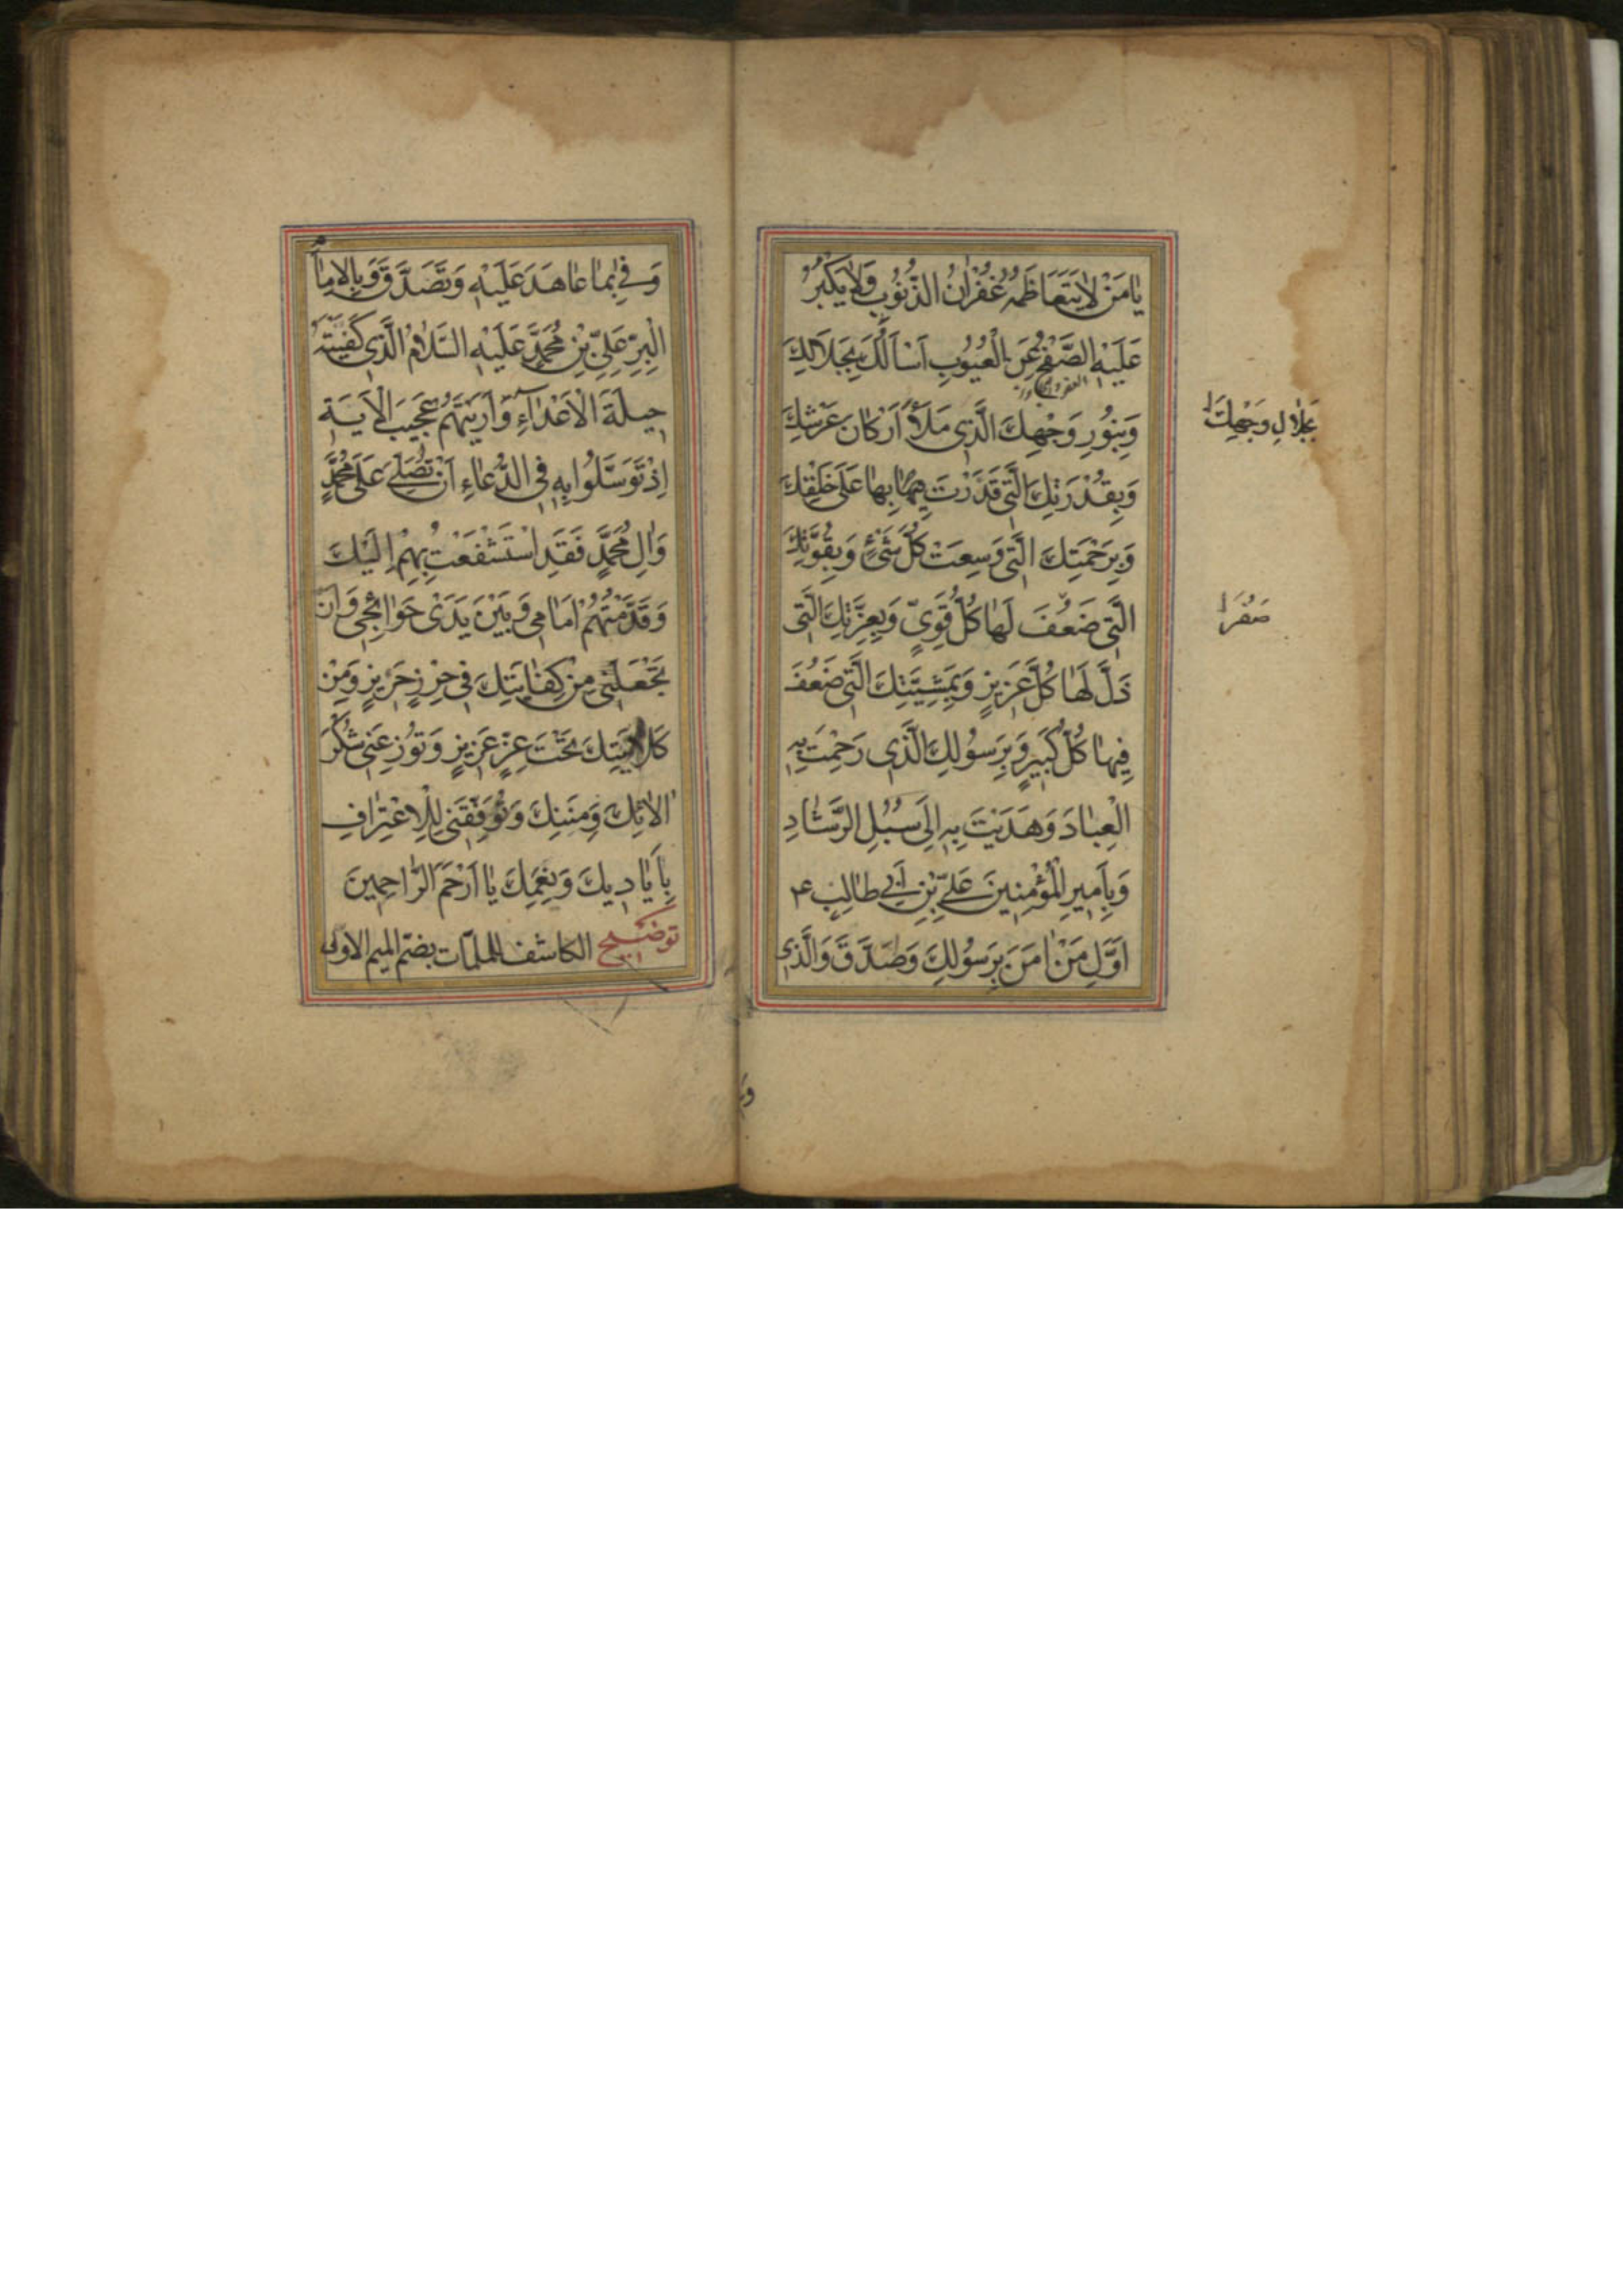 يَامَنْ لَايَتَعَاظَمُهُ غُفْرَانُ الذُّنُوبِ وَلَايَكْبُرُ
عَلَيْهِ الصَّفْحُ عَنِ الْعُيُوبِ اَسْاَلُكَ بِجَلَالِكَ
وَبِنُورِ وَجْهِكَ الَّذِى مَلَاَ اَرْكَانَ عَرْشِكَ
بِجَلَالِ وَجْهِكَ
وَبِقُدْرَتِكَ الَّتِى قَدَرْتَ بِهَا عَلَى خَلْقِكَ
وَبِرَحْمَتِكَ الَّتِى وَسِعَتْ كُلَّ شَىْءٍ وَبِقُوَّتِكَ
الَّتِى ضَعُفَ لَهَا كُلُّ قَوِىٍّ وَبِعِزَّتِكَ الَّتِى
ذَلَّ لَهَا كُلُّ عَزِيزٍ وَبِمَشِيَّتِكَ الَّتِى ضَعُفَ
فِيهَا كُلُّ كَبِيرٍ وَبِرَسُولِكَ الَّذِى رَحِمْتَ بِهِ
الْعِبَادَ وَهَدَيْتَ بِهِ اِلَى سُبُلِ الرَّشَادِ
وَبِاَمِيرِ الْمُؤْمِنِينَ عَلِىِّ بْنِ اَبِى طَالِبٍ ع
اَوَّلِ مَنْ اٰمَنَ بِرَسُولِكَ وَصَدَّقَ وَالَّذِى
وَفِى بِمَا عَاهَدَ عَلَيْهِ وَتَصَدَّقَ وَبِالْاِمَامِ
الْبَرِّ عَلِىِّ بْنِ مُحَمَّدٍ عَلَيْهِ السَّلَامُ الَّذِى كَفَيْتَهُ
حِيلَةَ الْاَعْدَاءِ وَاَرَيْتَهُمْ عَجِيبَ الْاٰيَةِ
اِذْ تَوَسَّلُوا بِهِ فِى الدُّعَاءِ اَنْ تُصَلِّىَ عَلَى مُحَمَّدٍ
وَاٰلِ مُحَمَّدٍ فَقَدِ اسْتَشْفَعْتُ بِهِمْ اِلَيْكَ
وَقَدَّمْتُهُمْ اَمَامِى وَبَيْنَ يَدَىْ حَوَائِجِى وَاَنْ
تَجْعَلَنِى مِنْ كِفَايَتِكَ فِى حِرْزٍ حَرِيزٍ وَمِنْ
كَلَايَتِكَ تَحْتَ عِزٍّ عَزِيزٍ وَتُوزِعَنِى شُكْرَ
اٰلَائِكَ وَمِنَنِكَ وَتُوَفِّقَنِى لِلْاِعْتِرَافِ
بِاَيَادِيكَ وَنِعَمِكَ يَا اَرْحَمَ الرَّاحِمِينَ
توضيح الكاشف للملمّات بضمّ الميم الاولى